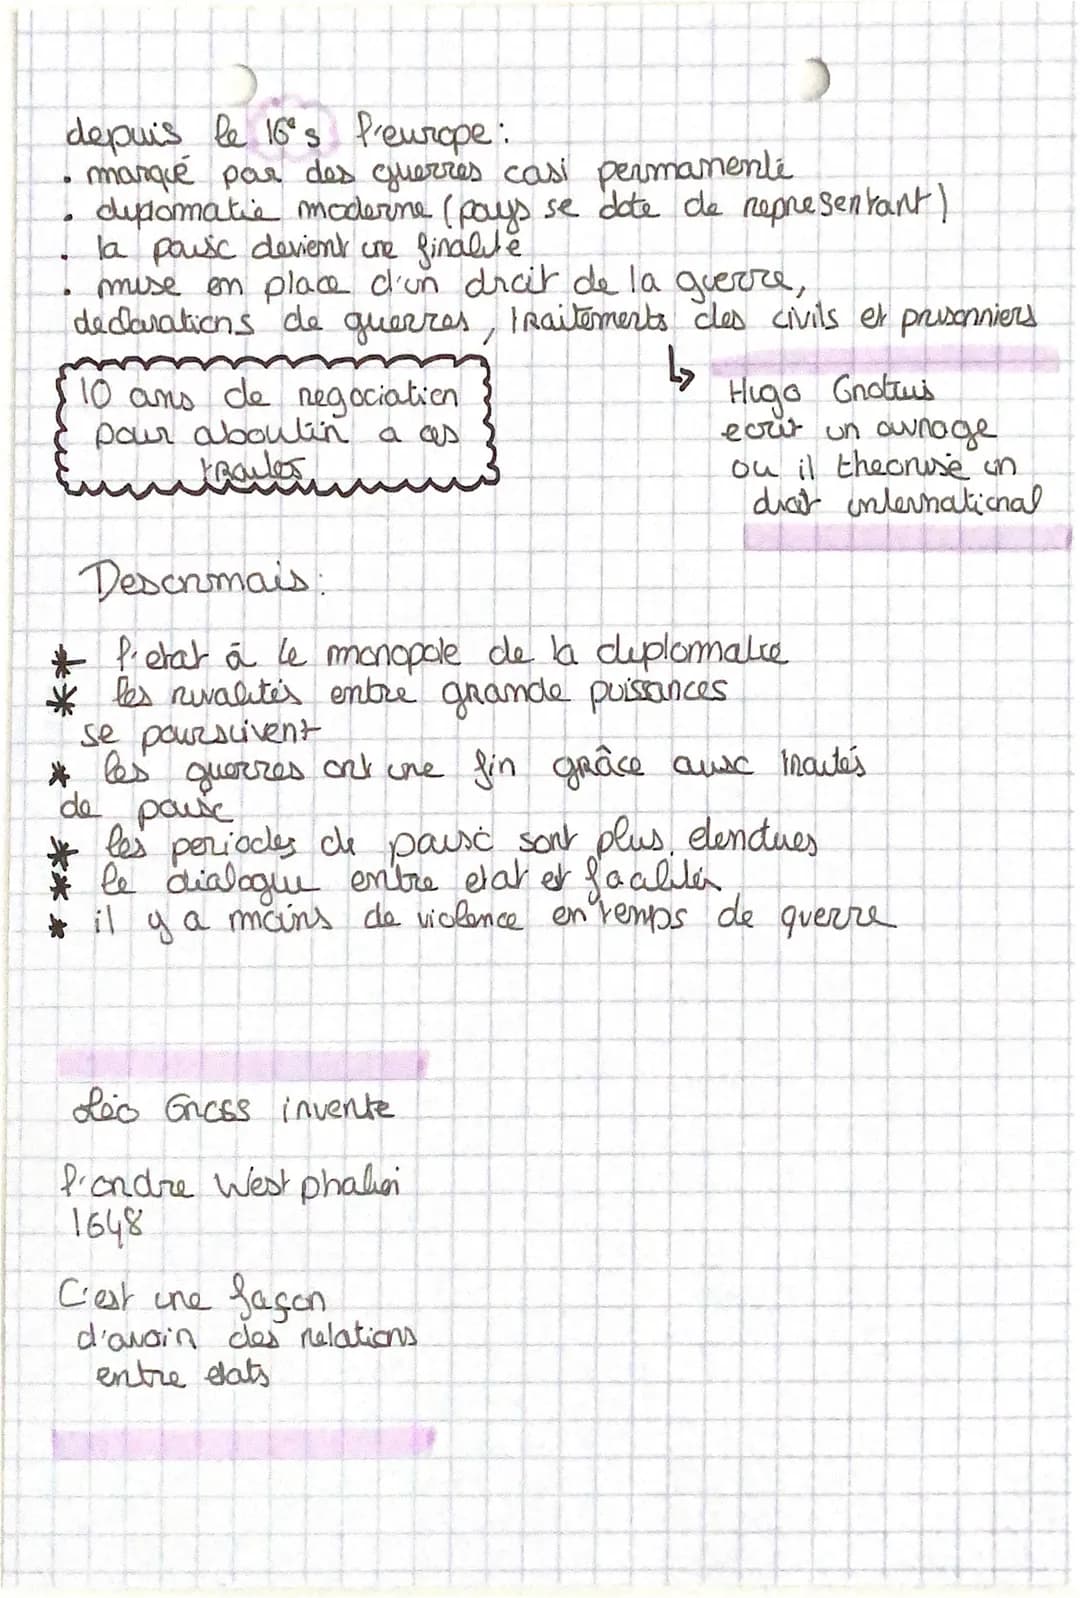 depuis le 16e s l'europe:
• marqué par des guerres casi permanente
• diplomatie moderne (pays se dote de representant)
• la paix devient une finalité
• mise en place d'un droit de la guerre,
declarations de guerres, traitements des civils et prisonniers
10 ans de negociation
pour aboutir a ces
traités
↳ Hugo Grotius
ecrit un ouvrage
ou il theorise un
droit international
Desormais:
* l'etat à le monopole de la diplomatie
* les rivalités entre grande puissances
se poursuivent
* les guerres ont une fin grâce aux traités
de paix
* les periodes de paix sont plus etendues
* le dialogue entre etat et facilité
* il y a moins de violence en temps de guerre
Léo Gross invente
l'ordre Westphalien
1648
C'est une façon
d'avoir des relations
entre etats